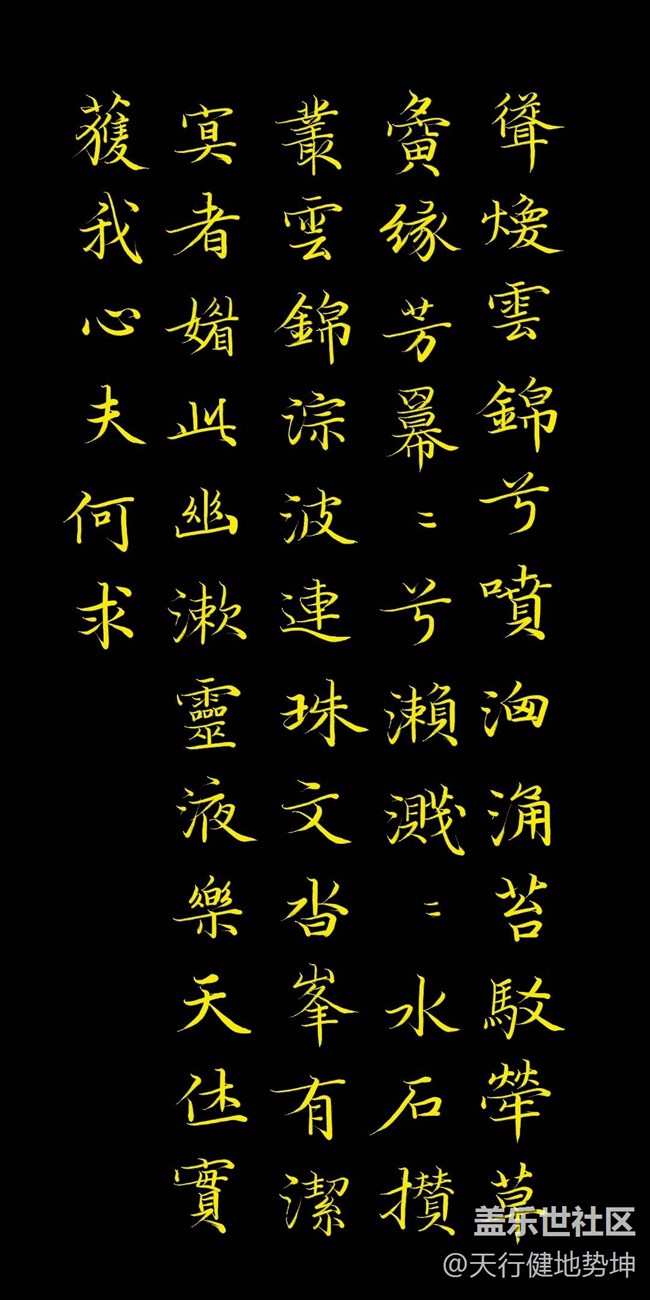 聳煥雲錦兮噴洶涌苔駁犖草
夤緣芳羃〻兮瀨濺〻水石攢
叢雲錦淙波連珠文沓峯有潔
冥者媚此幽漱靈液樂天休實
獲我心夫何求
盖乐世社区
@天行健地势坤